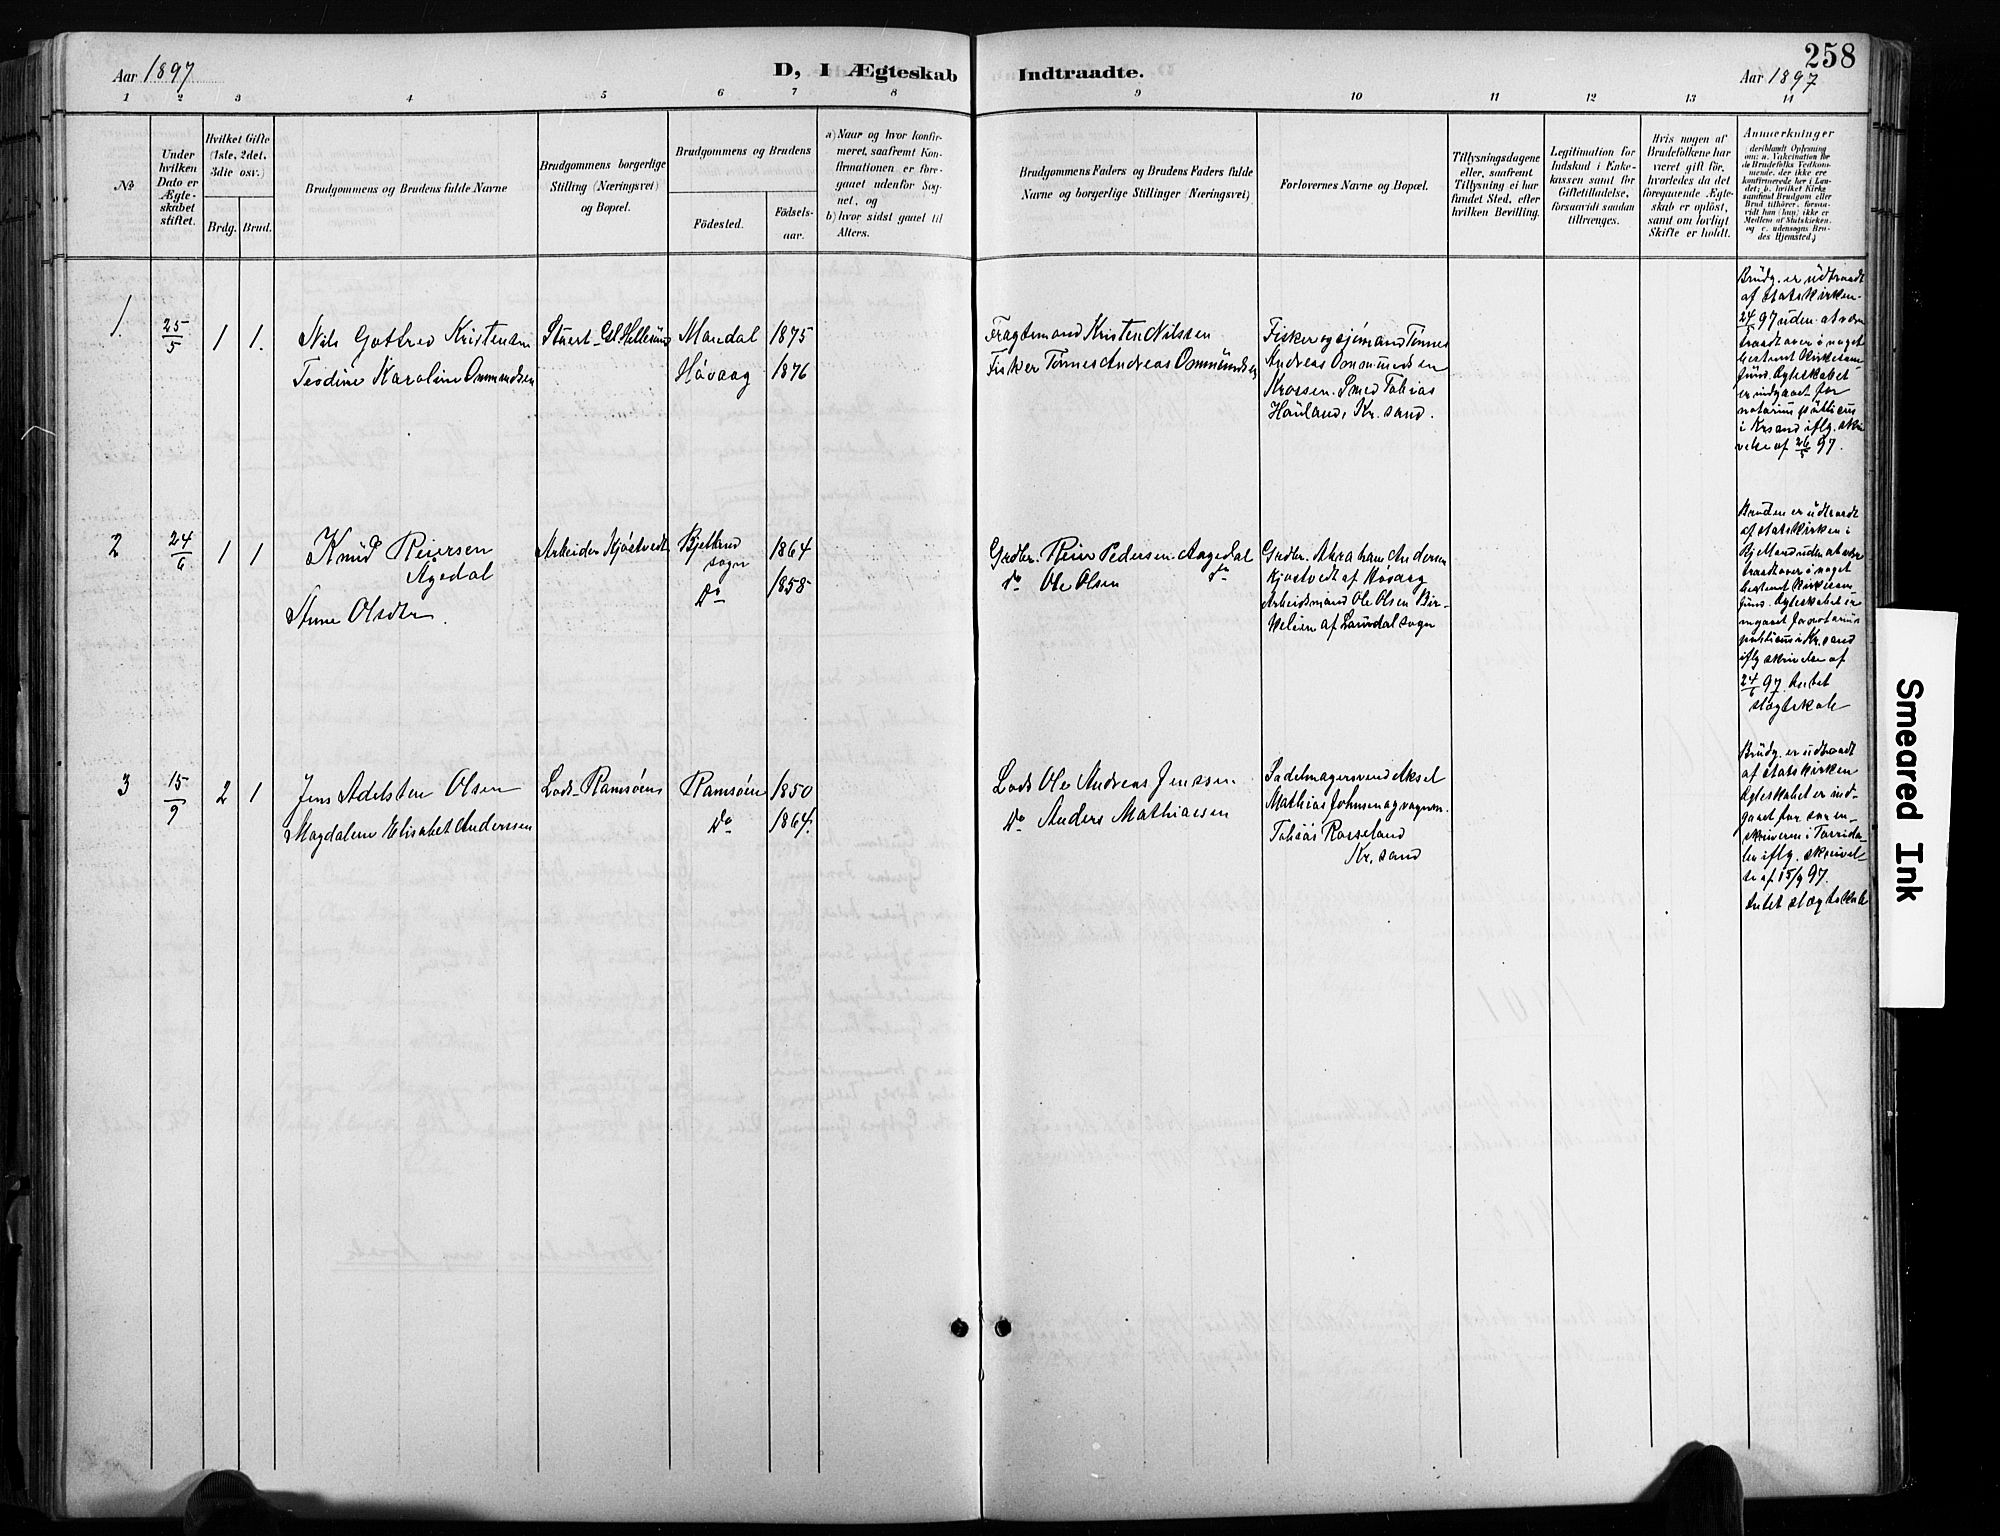 258
Aar 1897
D, I Ægteskab Indtraadte.
Aar 1897
1 2 3 4 5 6 7 8 9 10 11 12 13 14
No
Under hvilken Dato er Ægteskabet stiftet.
Hvilket Gifte (1ste, 2det, 3die osv.)
Brdg. Brud.
Brudgommens og Brudens fulde Navne
Brudgommens borgerlige Stilling (Næringsvei) og Bopæl.
Brudgommens og Brudens
Fødested.
Fødselsaar.
a) Naar og hvor konfirmeret, saafremt Konfirmationen er foregaaet udenfor Sognet, og
b) hvor sidst gaaet til Alters.
Brudgommens Faders og Brudens Faders fulde Navne og borgerlige Stillinger (Næringsvei)
Forlovernes Navne og Bopæl.
Tillysningsdagene eller, saafremt Tillysning ei har fundet Sted, efter hvilken Bevilling.
Legitimation for Indskud i Enkekassen samt for Giftetilladelse, forsaavidt saadan tiltrænges.
Hvis nogen af Brudefolkene har været gift før, hvorledes da det foregaaende Ægteskab er opløst, samt om lovligt Skifte er holdt.
Anmerkninger
(deriblandt Oplysning om: a. Vakcination for de Brudefolks Vedkommende, der ikke ere konfirmerede her i Landet; b. hvilket Kirkesamfund Brudgom eller Brud tilhører, forsaavidt han (hun) ikke er Medlem af Statskirken og c. udensogns Brudes Hjemsted.)
1
25/5
1 1.
Nils Gotfred Kristensen
Teodine Karoline Ommundsen
Stuert Gl. Hellesund
Mandal 1875
Høvaag 1876
Fragtemand Kristen Nilssen
Fisker Tønnes Andreas Ommundsen
Fisker og sjømand Tønnes
Andreas Ommundsen
Krossen. Smed Tobias
Hauland, Kr.sand.
Brudg. er udtraadt
af statskirken
24/5 97 uden at være
traadt over i noget
bestemt kirkesam-
fund. Ægteskabet
er indgaaet for
notarius publicus
i Krsand iflg. skri-
velse af 26/5 97.
2
24/6
1 1
Knud Reiersen
Agedal
Anne Olsdtr.
Arbeider Kjøstvedt
Bjelland
sogn
Do
1864
1858
Grdbr. Reier Pedersen Aagedal
do Ole Olsen do
Grdbr. Abraham Andersen
Kjøstvedt af Høvaag
Arbeidsmand Ole Olsen Bir-
keleien af Laudal sogn
Bruden er udtraadt
af statskirken i
Bjelland uden at være
traadt over i noget
bestemt kirkesam-
fund. Ægteskabet er
indgaaet for notarius
publicus i Kr.sand
iflg skrivelse af
24/6 97. Intet
slægtskab
3
15/9
2 1
Jens Adelsten Olsen
Magdalene Elisabet Anderssen
Lods Ramsøens
Ramsøen 1850
Do 1864.
Lods Ole Andreas Jenssen
Do Anders Mathiassen
Sadelmagersvend Aksel
Mathias Johnsen og vognm.
Tobias Rosseland
Kr.sand
Brudg. er udtraadt
af statskirken
Ægteskabet er ind-
gaaet for soren-
skriveren i Torrida-
len iflg. skrivel-
se af 15/9 97.
Intet slægtskab
Smeared Ink